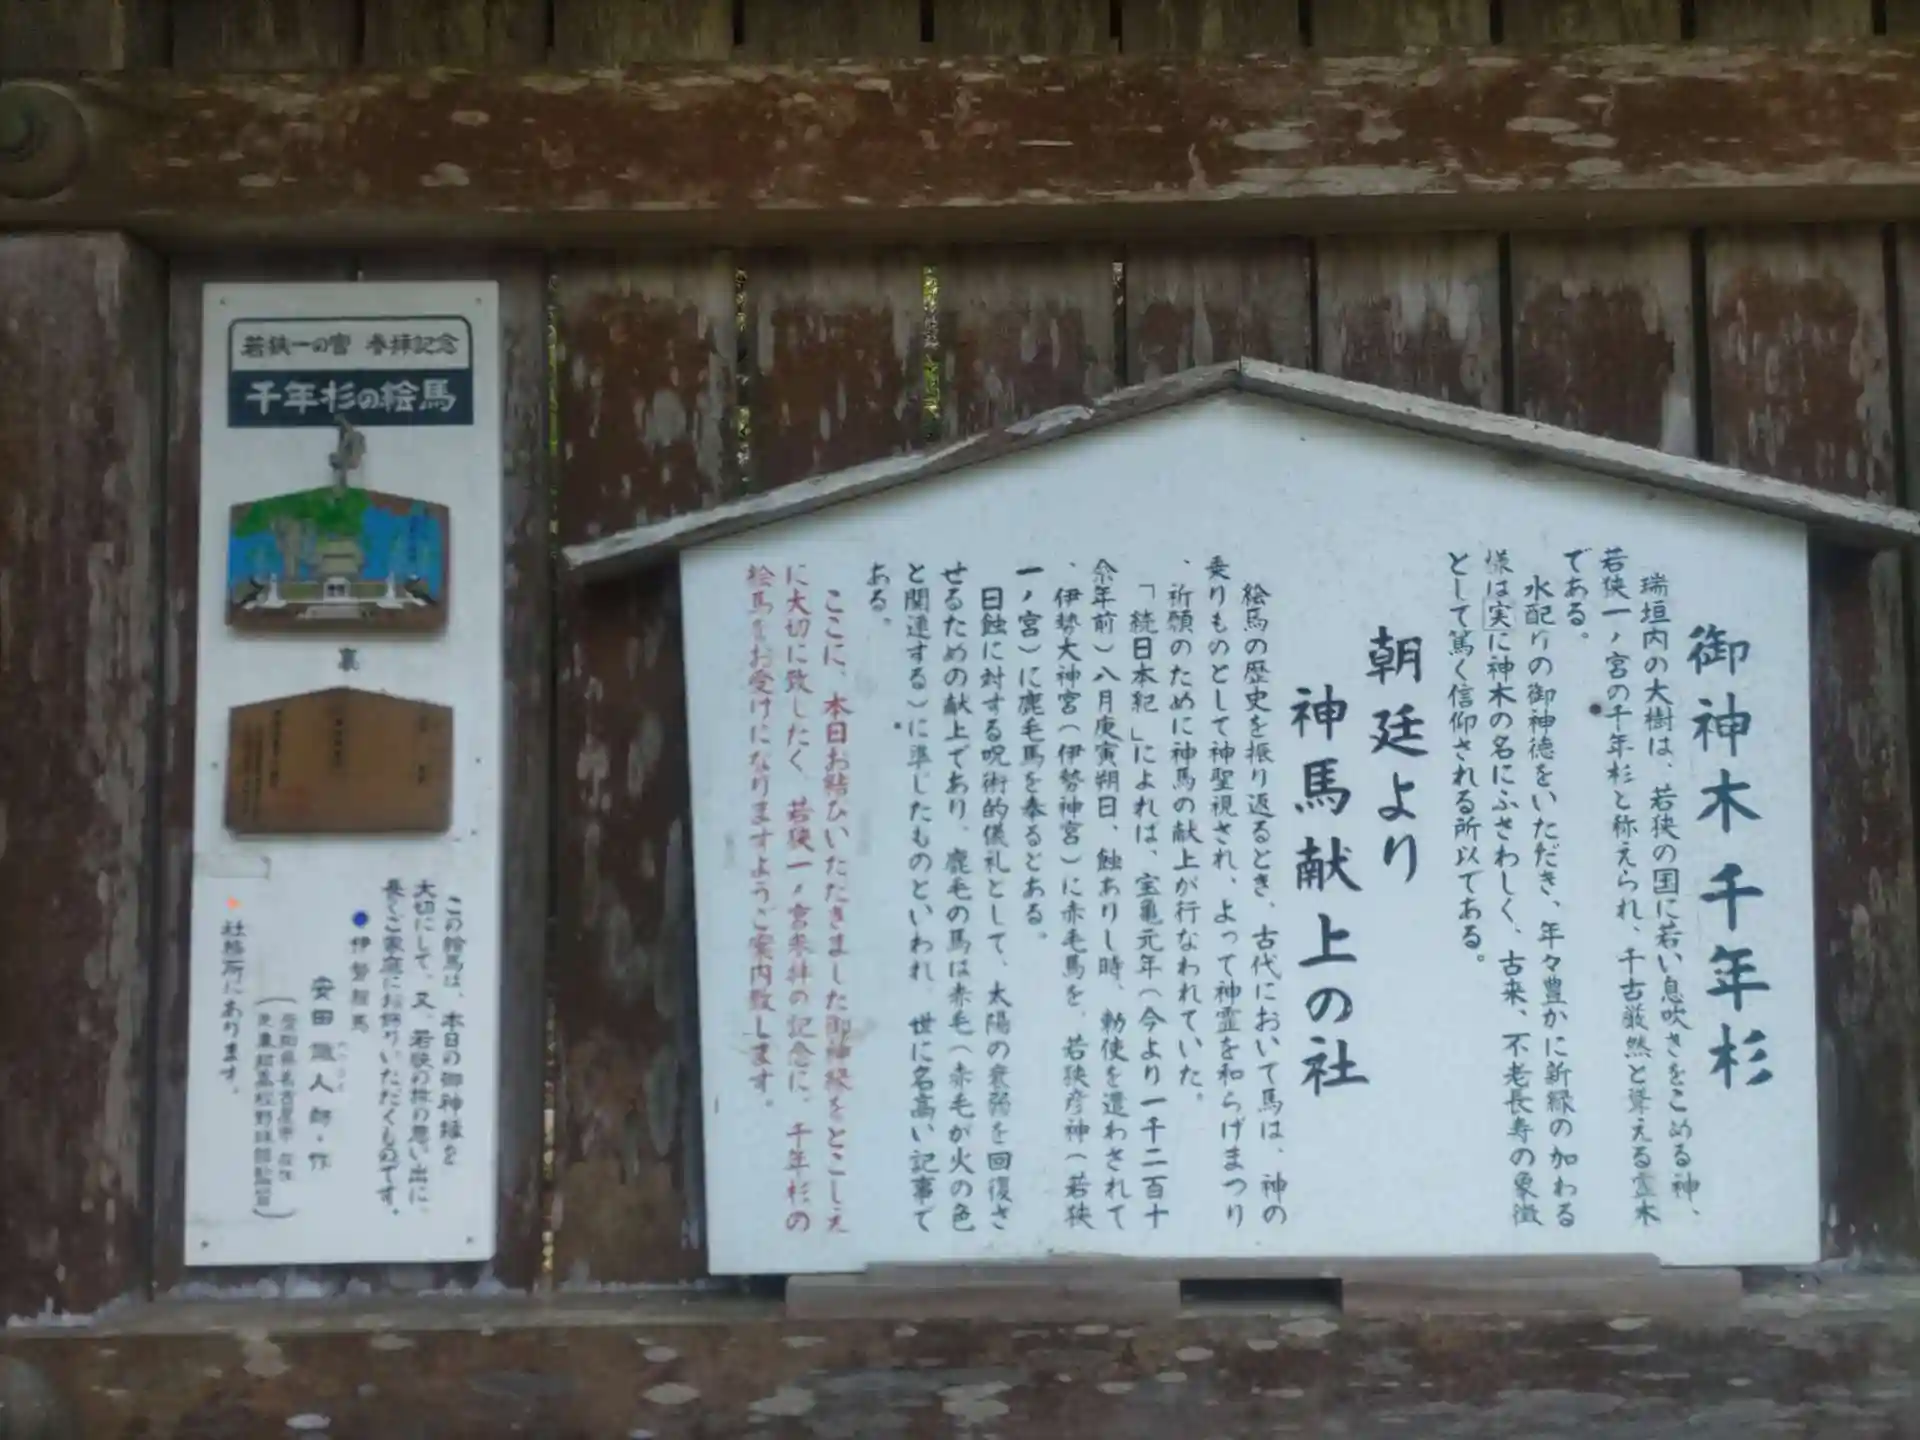 御神木千年杉
瑞垣内の大樹は、若狭の国に若い息吹きをこめる神、
若狭一ノ宮の千年杉と称えられ、千古厳然と聳える霊木
である。
水配りの御神徳をいただき、年々豊かに新緑の加わる
様は実に神木の名にふさわしく、古来、不老長寿の象徴
として篤く信仰される所以である。
朝廷より
神馬献上の社
絵馬の歴史を振り返るとき、古代において馬は、神の
乗りものとして神聖視され、よって神霊を和らげまつり
、祈願のために神馬の献上が行なわれていた。
「続日本紀」によれば、宝亀元年(今より一千二百十
余年前)八月庚寅朔日、蝕ありし時、勅使を遣わされて
、伊勢大神宮(伊勢神宮)に赤毛馬を、若狭彦神(若狭
一ノ宮)に鹿毛馬を奉るとある。
日蝕に対する呪術的儀礼として、太陽の衰弱を回復さ
せるための献上であり、鹿毛の馬は赤毛(赤毛が火の色
と関連する)に準じたものといわれ、世に名高い記事で
ある。
ここに、本日お結びいただきました御神縁をとこしえ
に大切に致したく、若狭一ノ宮参拝の記念に、千年杉の
絵馬をお受けになりますようご案内致します。
若狭一の宮 参拝記念
千年杉の絵馬
裏
この絵馬は、本日の御神縁を
大切にして、又、若狭の旅の思い出に、
長くご家庭にお飾りいただくものです。
伊勢型馬
安田識人師・作
(愛知県名古屋市 在住
社務所にあります。